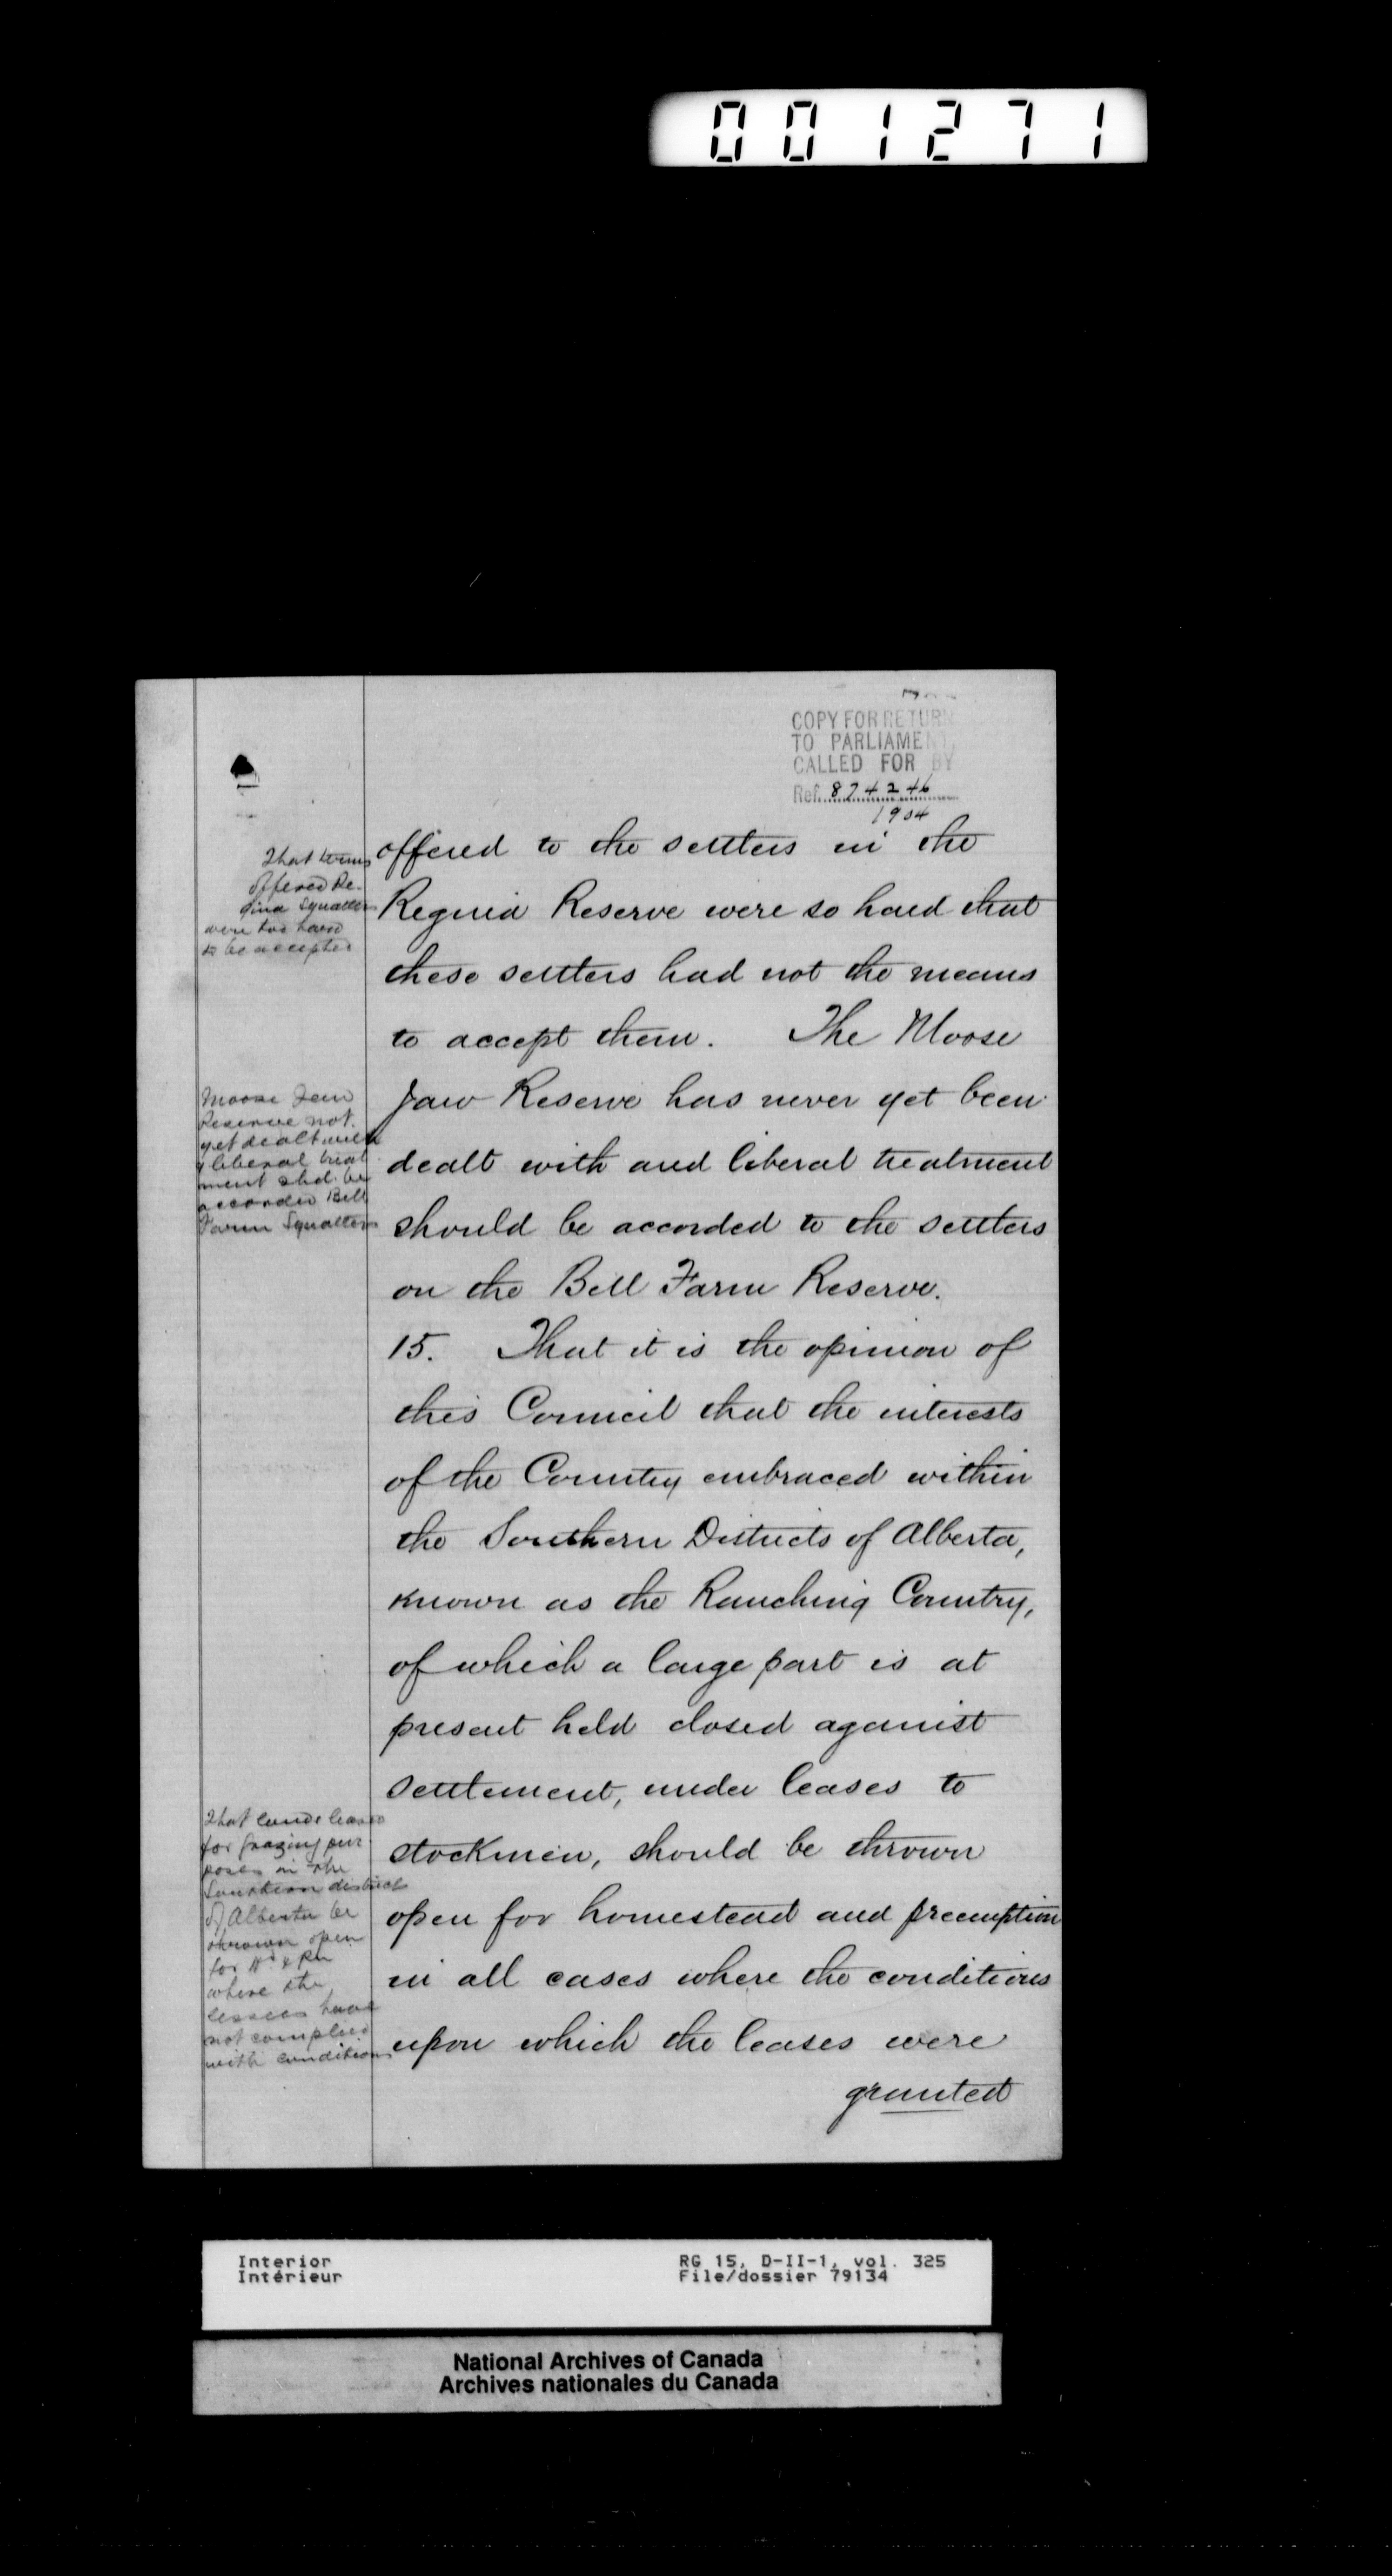 001271
COPY FOR RETURN
TO PARLIAMENT
CALLED FOR BY
Ref. 874246
1904
That terms
offered Re-
gina Squatters
were too hard
to be accepted
offered to the settlers in the
Regina Reserve were so hard that
these settlers had not the means
to accept them. The Moose
Jaw Reserve has never yet been
dealt with and liberal treatment
should be accorded to the settlers
on the Bell Farm Reserve.
Moose Jaw
Reserve not
yet dealt with
& liberal treat
ment shd. be
accorded Bell
Farm Squatters
15. That it is the opinion of
this Council that the interests
of the Country embraced within
the Southern Districts of Alberta,
known as the Ranching Country,
of which a large part is at
present held closed against
settlement, under leases to
stockmen, should be thrown
open for homestead and preemption
in all cases where the conditions
upon which the leases were
granted
That lands leased
for grazing pur
poses in the
Southern district
of Alberta be
thrown open
for Hd & Pn
where the
lessees have
not complied
with conditions
Interior
Intérieur
RG 15, D-II-1, vol. 325
File/dossier 79134
National Archives of Canada
Archives nationales du Canada